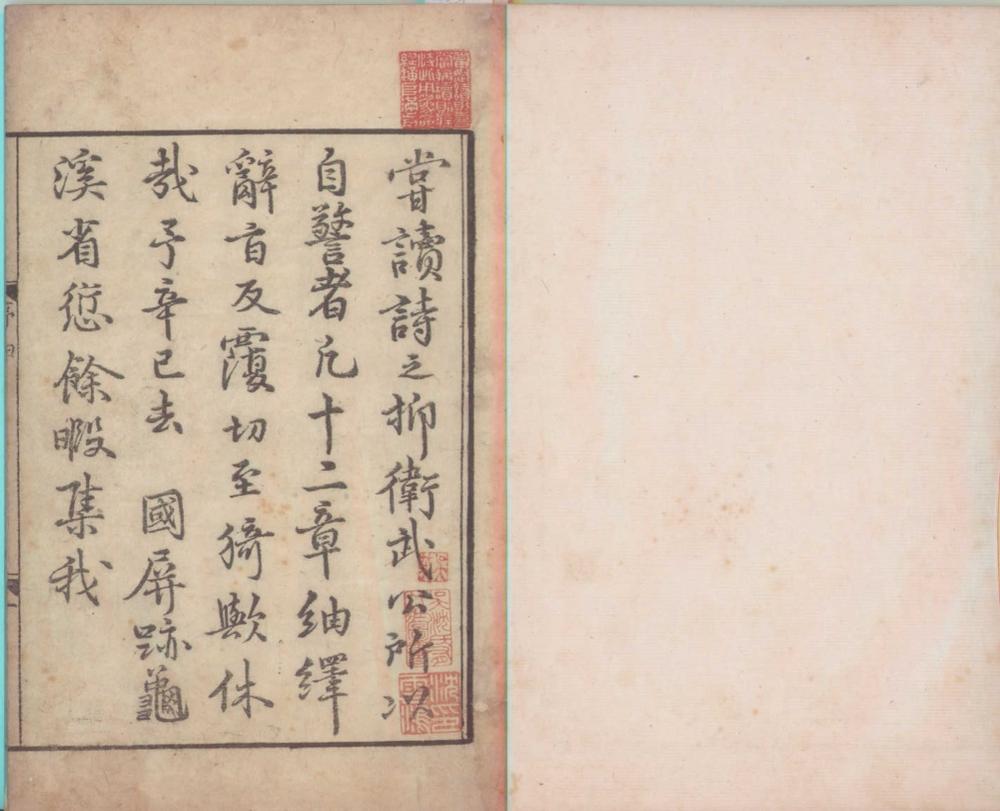 甞讀詩之抑衛武公所以
自警者凡十二章紬繹
辭旨反覆切至猗歟休
哉予辛巳去　國屏跡龜
溪省愆餘暇集我